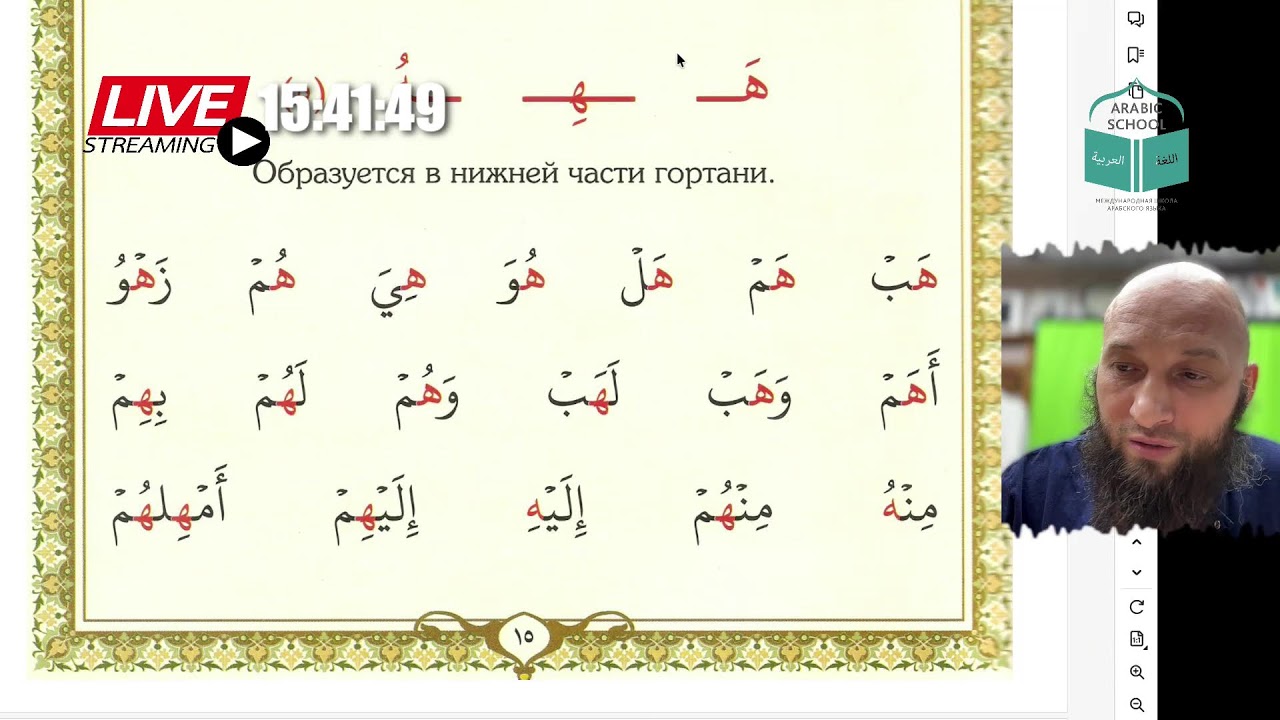 هَـ ـهِـ ـهُ
LIVE
STREAMING
15:41:49
Образуется в нижней части гортани.
هَبْ هَمْ هَلْ هُوَ هِيَ هُمْ زَهْوُ
أَهَمْ وَهَبْ لَهَبْ وَهُمْ لَهُمْ بِهِمْ
مِنْهُ مِنْهُمْ إِلَيْهِ إِلَيْهِمْ أَمْهِلهُمْ
١٥
ARABIC
SCHOOL
العربية اللغة
МЕЖДУНАРОДНАЯ ШКОЛА
АРАБСКОГО ЯЗЫКА
1:1